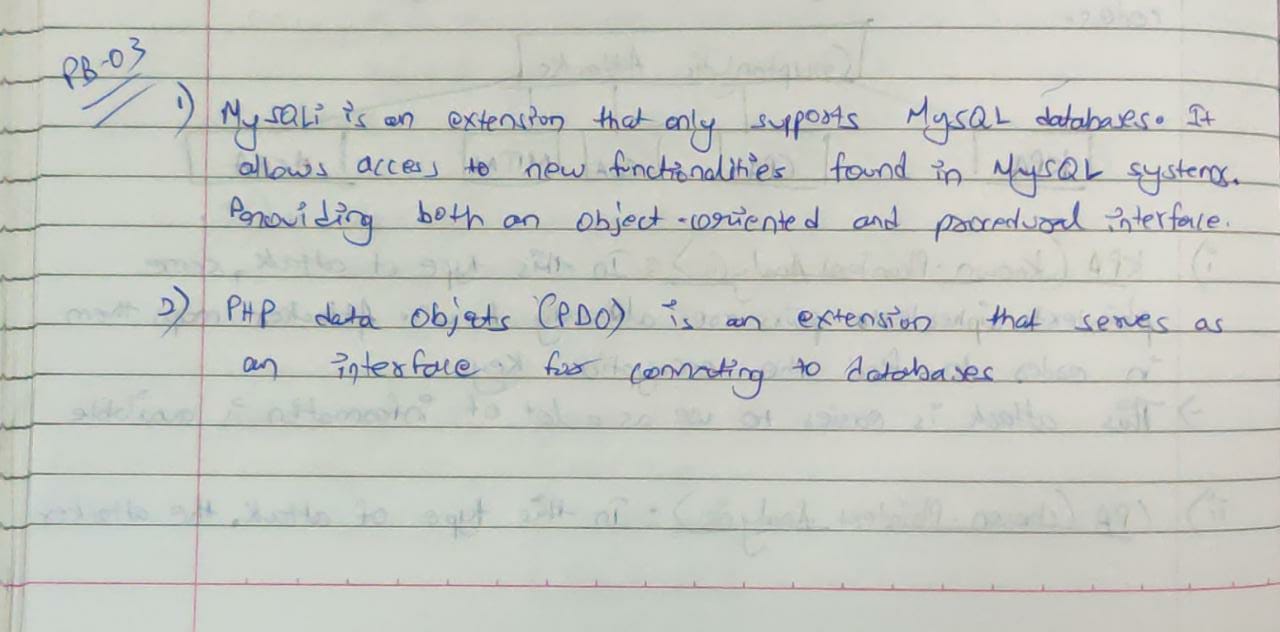 PB-03
1) MySQLi is an extension that only supports MySQL databases. It
allows access to new functionalities found in MySQL systems.
Providing both an object-oriented and procedural interface.
2) PHP data objets (PDO) is an extension that serves as
an interface for connecting to databases